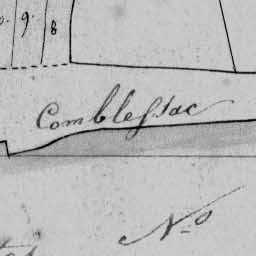 9 8
Comblessac
N.o